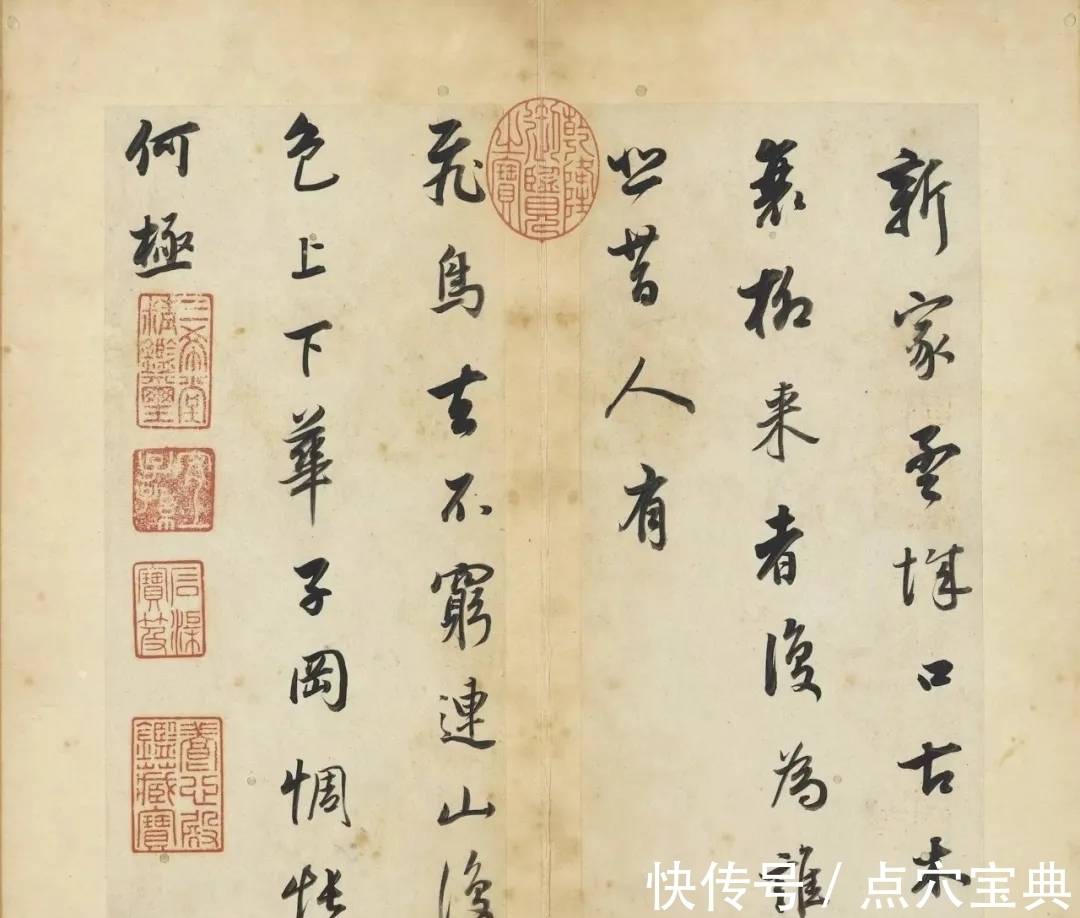 新家孟城口古木
衰柳来者復為誰
悲昔人有
飛鳥去不窮連山復
色上下華子岡惆悵
何極
乾隆御覽之寶
三希堂精鑑璽
石渠寶笈
養心殿鑑藏寶
快传号 / 点穴宝典